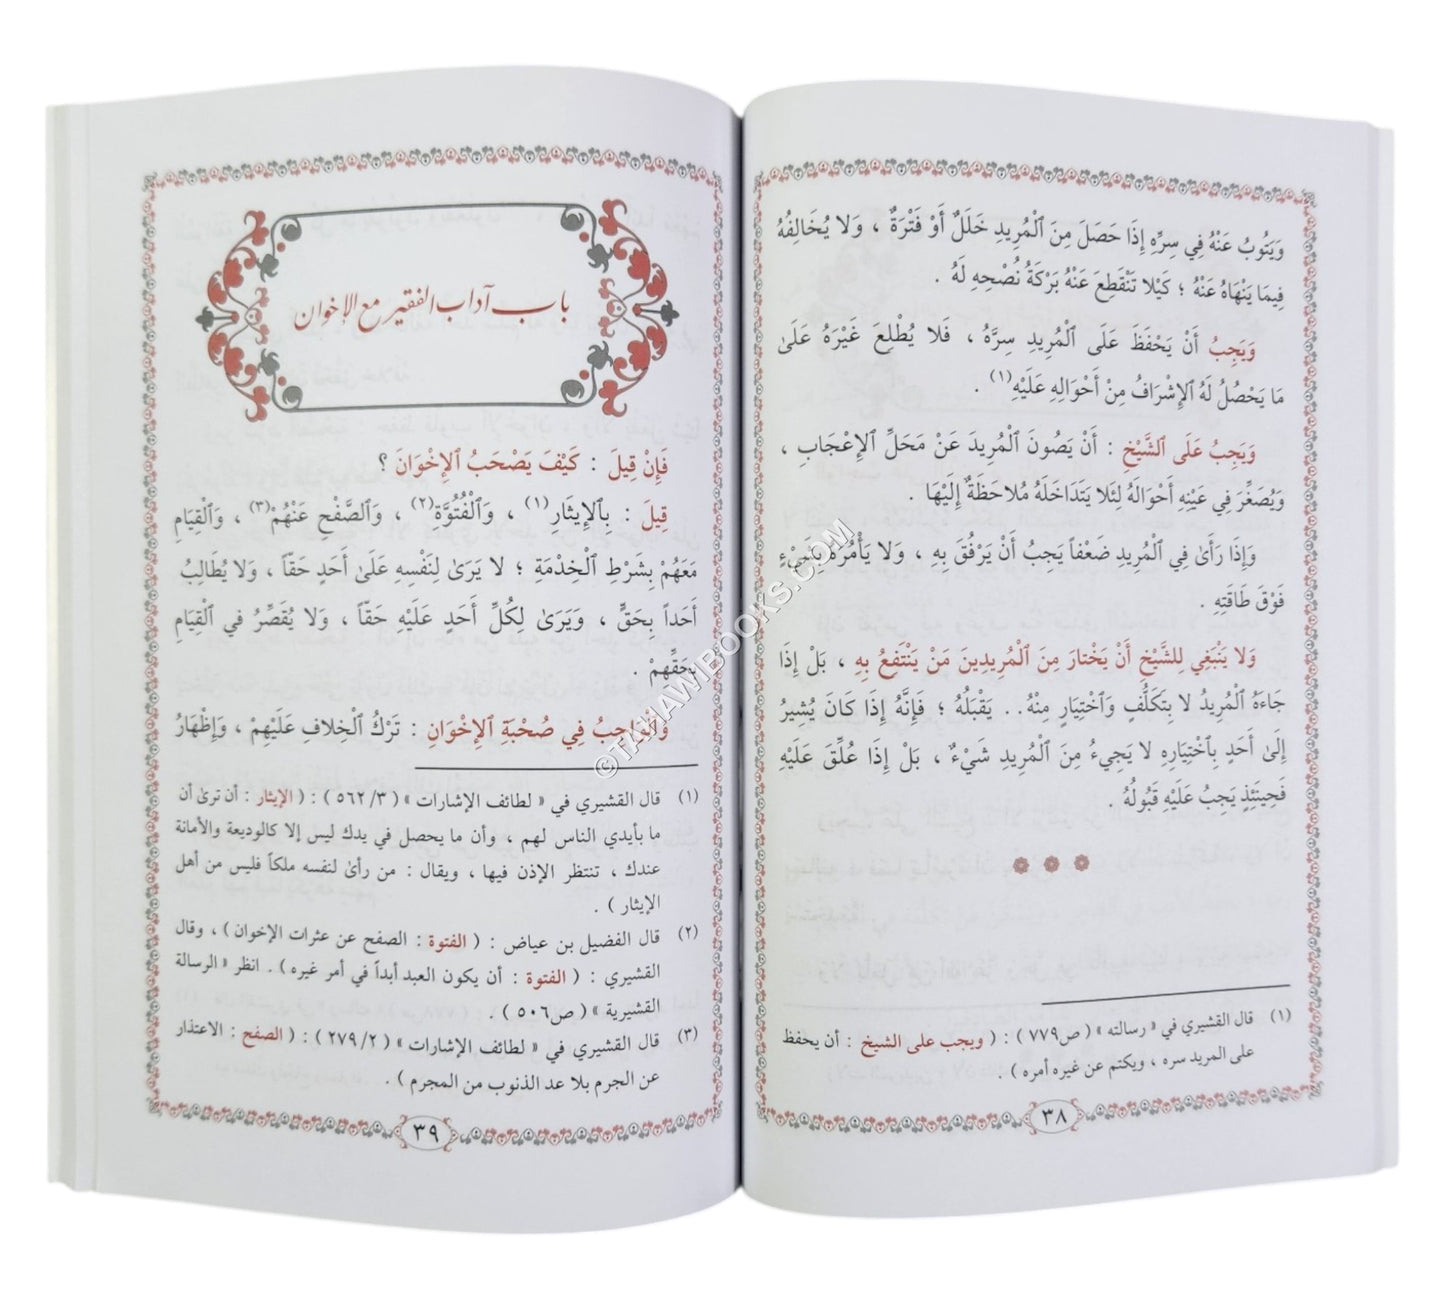 وَيَتُوبُ عَنْهُ فِي سِرِّهِ إِذَا حَصَلَ مِنَ ٱلْمُرِيدِ خَلَلٌ أَوْ فَتْرَةٌ ، وَلَا يُخَالِفُهُ
فِيمَا يَنْهَاهُ عَنْهُ ؛ كَيْلَا تَنْقَطِعَ عَنْهُ بَرَكَةُ نُصْحِهِ لَهُ .
وَيَجِبُ أَنْ يَحْفَظَ عَلَى ٱلْمُرِيدِ سِرَّهُ ، فَلَا يُطْلِعَ غَيْرَهُ عَلَىٰ
مَا يَحْصُلُ لَهُ ٱلْإِشْرَافُ مِنْ أَحْوَالِهِ عَلَيْهِ(١) .
وَيَجِبُ عَلَى ٱلشَّيْخِ : أَنْ يَصُونَ ٱلْمُرِيدَ عَنْ مَحَلِّ ٱلْإِعْجَابِ ،
وَيُصَغِّرَ فِي عَيْنِهِ أَحْوَالَهُ لِئَلَّا يَتَدَاخَلَهُ مُلَاحَظَةٌ إِلَيْهَا .
وَإِذَا رَأَىٰ فِي ٱلْمُرِيدِ ضَعْفاً يَجِبُ أَنْ يَرْفُقَ بِهِ ، وَلَا يَأْمُرَهُ بِشَيْءٍ
فَوْقَ طَاقَتِهِ .
وَلَا يَنْبَغِي لِلشَّيْخِ أَنْ يَخْتَارَ مِنَ ٱلْمُرِيدِينَ مَنْ يَنْتَفِعُ بِهِ ، بَلْ إِذَا
جَاءَهُ ٱلْمُرِيدُ لَا بِتَكَلُّفٍ وَٱخْتِيَارٍ مِنْهُ.. يَقْبَلُهُ ؛ فَإِنَّهُ إِذَا كَانَ يُشِيرُ
إِلَىٰ أَحَدٍ بِٱخْتِيَارِهِ لَا يَجِيءُ مِنَ ٱلْمُرِيدِ شَيْءٌ ، بَلْ إِذَا عُلِّقَ عَلَيْهِ
فَحِينَئِذٍ يَجِبُ عَلَيْهِ قَبُولُهُ .
(١) قال القشيري في « رسالته » ( ص٧٧٩ ) : ( ويجب على الشيخ : أن يحفظ
على المريد سره ، ويكتم عن غيره أمره ) .
٣٨
باب آداب الفقير مع الإخوان
فَإِنْ قِيلَ : كَيْفَ يَصْحَبُ ٱلْإِخْوَانَ ؟
قِيلَ : بِٱلْإِيثَارِ(١) ، وَٱلْفُتُوَّةِ(٢) ، وَٱلصَّفْحِ عَنْهُمْ(٣) ، وَٱلْقِيَامِ
مَعَهُمْ بِشَرْطِ ٱلْخِدْمَةِ ؛ لَا يَرَىٰ لِنَفْسِهِ عَلَىٰ أَحَدٍ حَقّاً ، وَلَا يُطَالِبُ
أَحَداً بِحَقٍّ ، وَيَرَىٰ لِكُلِّ أَحَدٍ عَلَيْهِ حَقّاً ، وَلَا يُقَصِّرُ فِي ٱلْقِيَامِ
بِحَقِّهِمْ .
وَٱلْوَاجِبُ فِي صُحْبَةِ ٱلْإِخْوَانِ : تَرْكُ ٱلْخِلَافِ عَلَيْهِمْ ، وَإِظْهَارُ
(١) قال القشيري في « لطائف الإشارات » ( ٣/ ٥٦٢ ) : ( الإيثار : أن ترىٰ أن
ما بأيدي الناس لهم ، وأن ما يحصل في يدك ليس إلا كالوديعة والأمانة
عندك ، تنتظر الإذن فيها ، ويقال : من رأىٰ لنفسه ملكاً فليس من أهل
الإيثار ) .
(٢) قال الفضيل بن عياض : ( الفتوة : الصفح عن عثرات الإخوان ) ، وقال
القشيري : ( الفتوة : أن يكون العبد أبداً في أمر غيره ) . انظر « الرسالة
القشيرية » ( ص٥٠٦ ) .
(٣) قال القشيري في « لطائف الإشارات » ( ٢/ ٢٧٩ ) : ( الصفح : الاعتذار
عن الجرم بلا عد الذنوب من المجرم ) .
٣٩
©TAHAWIBOOKS.COM